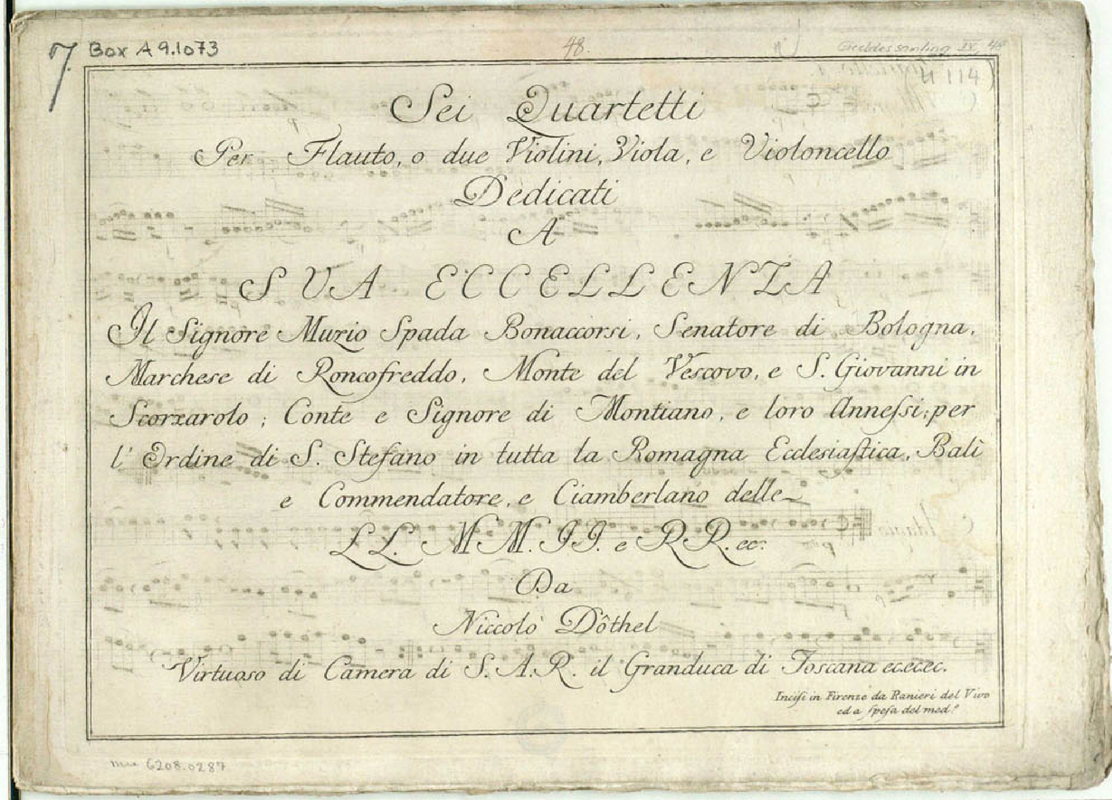 7. Box A 9.1073
48.
Gieddes samling IV, 48
U 114
Sei Quartetti
Per Flauto, o due Violini, Viola, e Violoncello
Dedicati
A
SUA ECCELLENZA
Il Signore Muzio Spada Bonaccorsi, Senatore di Bologna,
Marchese di Roncofreddo, Monte del Vescovo, e S. Giovanni in
Scorzarolo; Conte e Signore di Montiano, e loro Anneſsi; per
l'Ordine di S. Stefano in tutta la Romagna Ecclesiaſtica, Balì
e Commendatore, e Ciamberlano delle
LL. MM. II. e RR. ec.
Da
Niccolò Dôthel
Virtuoso di Camera di S. A. R. il Granduca di Toscana ec.ec.ec.
Inciſi in Firenze da Ranieri del Vivo
ed a ſpeſa del med.º
mu 6208.0287